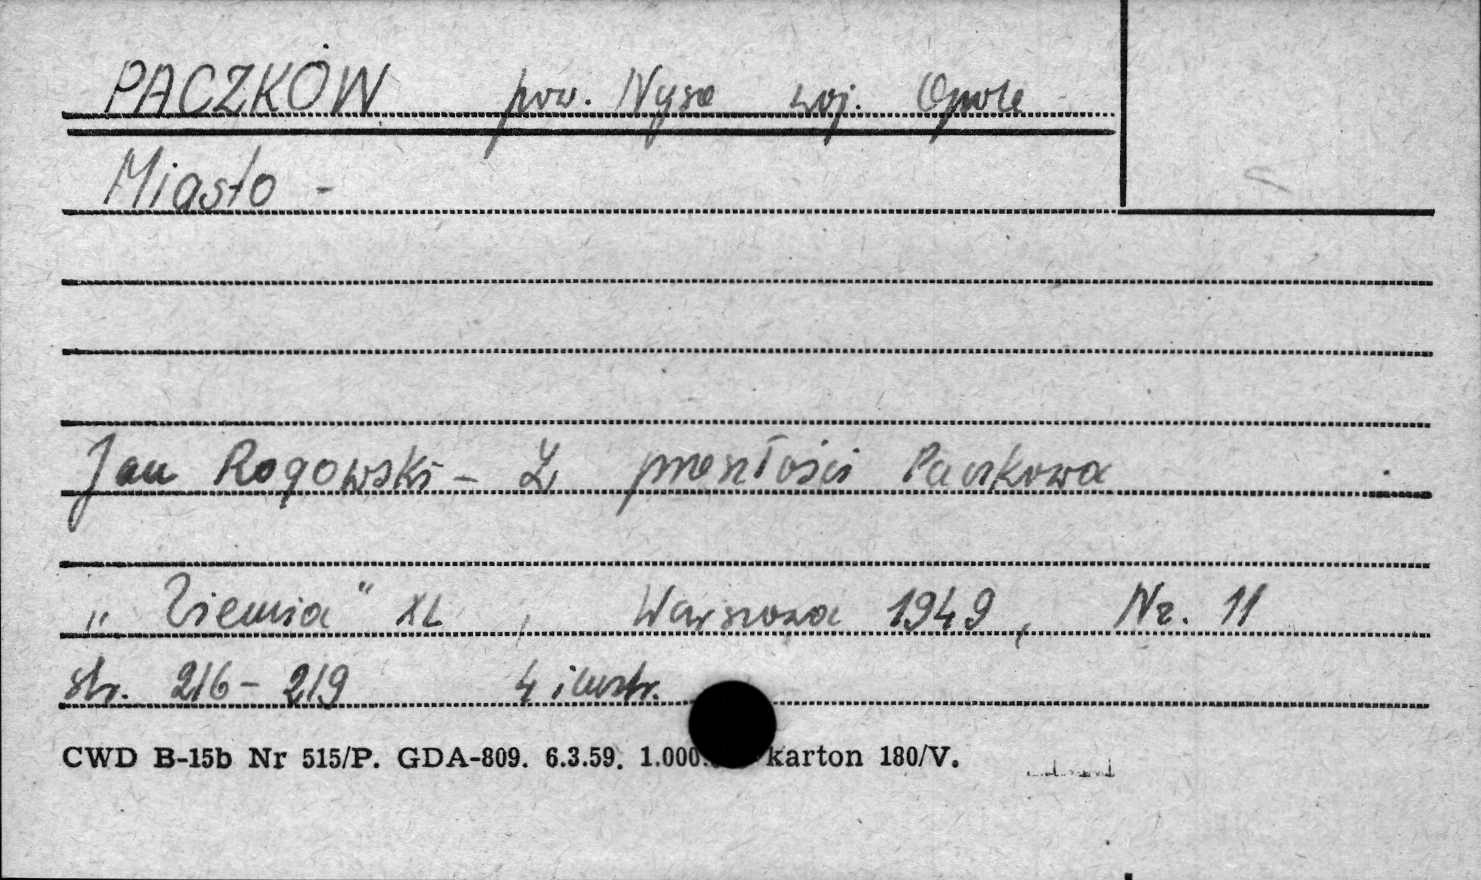 PACZKÓW pow. Nysa woj. Opole
Miasto -
Jan Rogowski - Z przeszłości Paczkowa
„Ziemia" XL, Warszawa 1949, Nr. 11
str. 216-219 4 ilustr.
CWD B-15b Nr 515/P. GDA-809. 6.3.59. 1.000. karton 180/V.